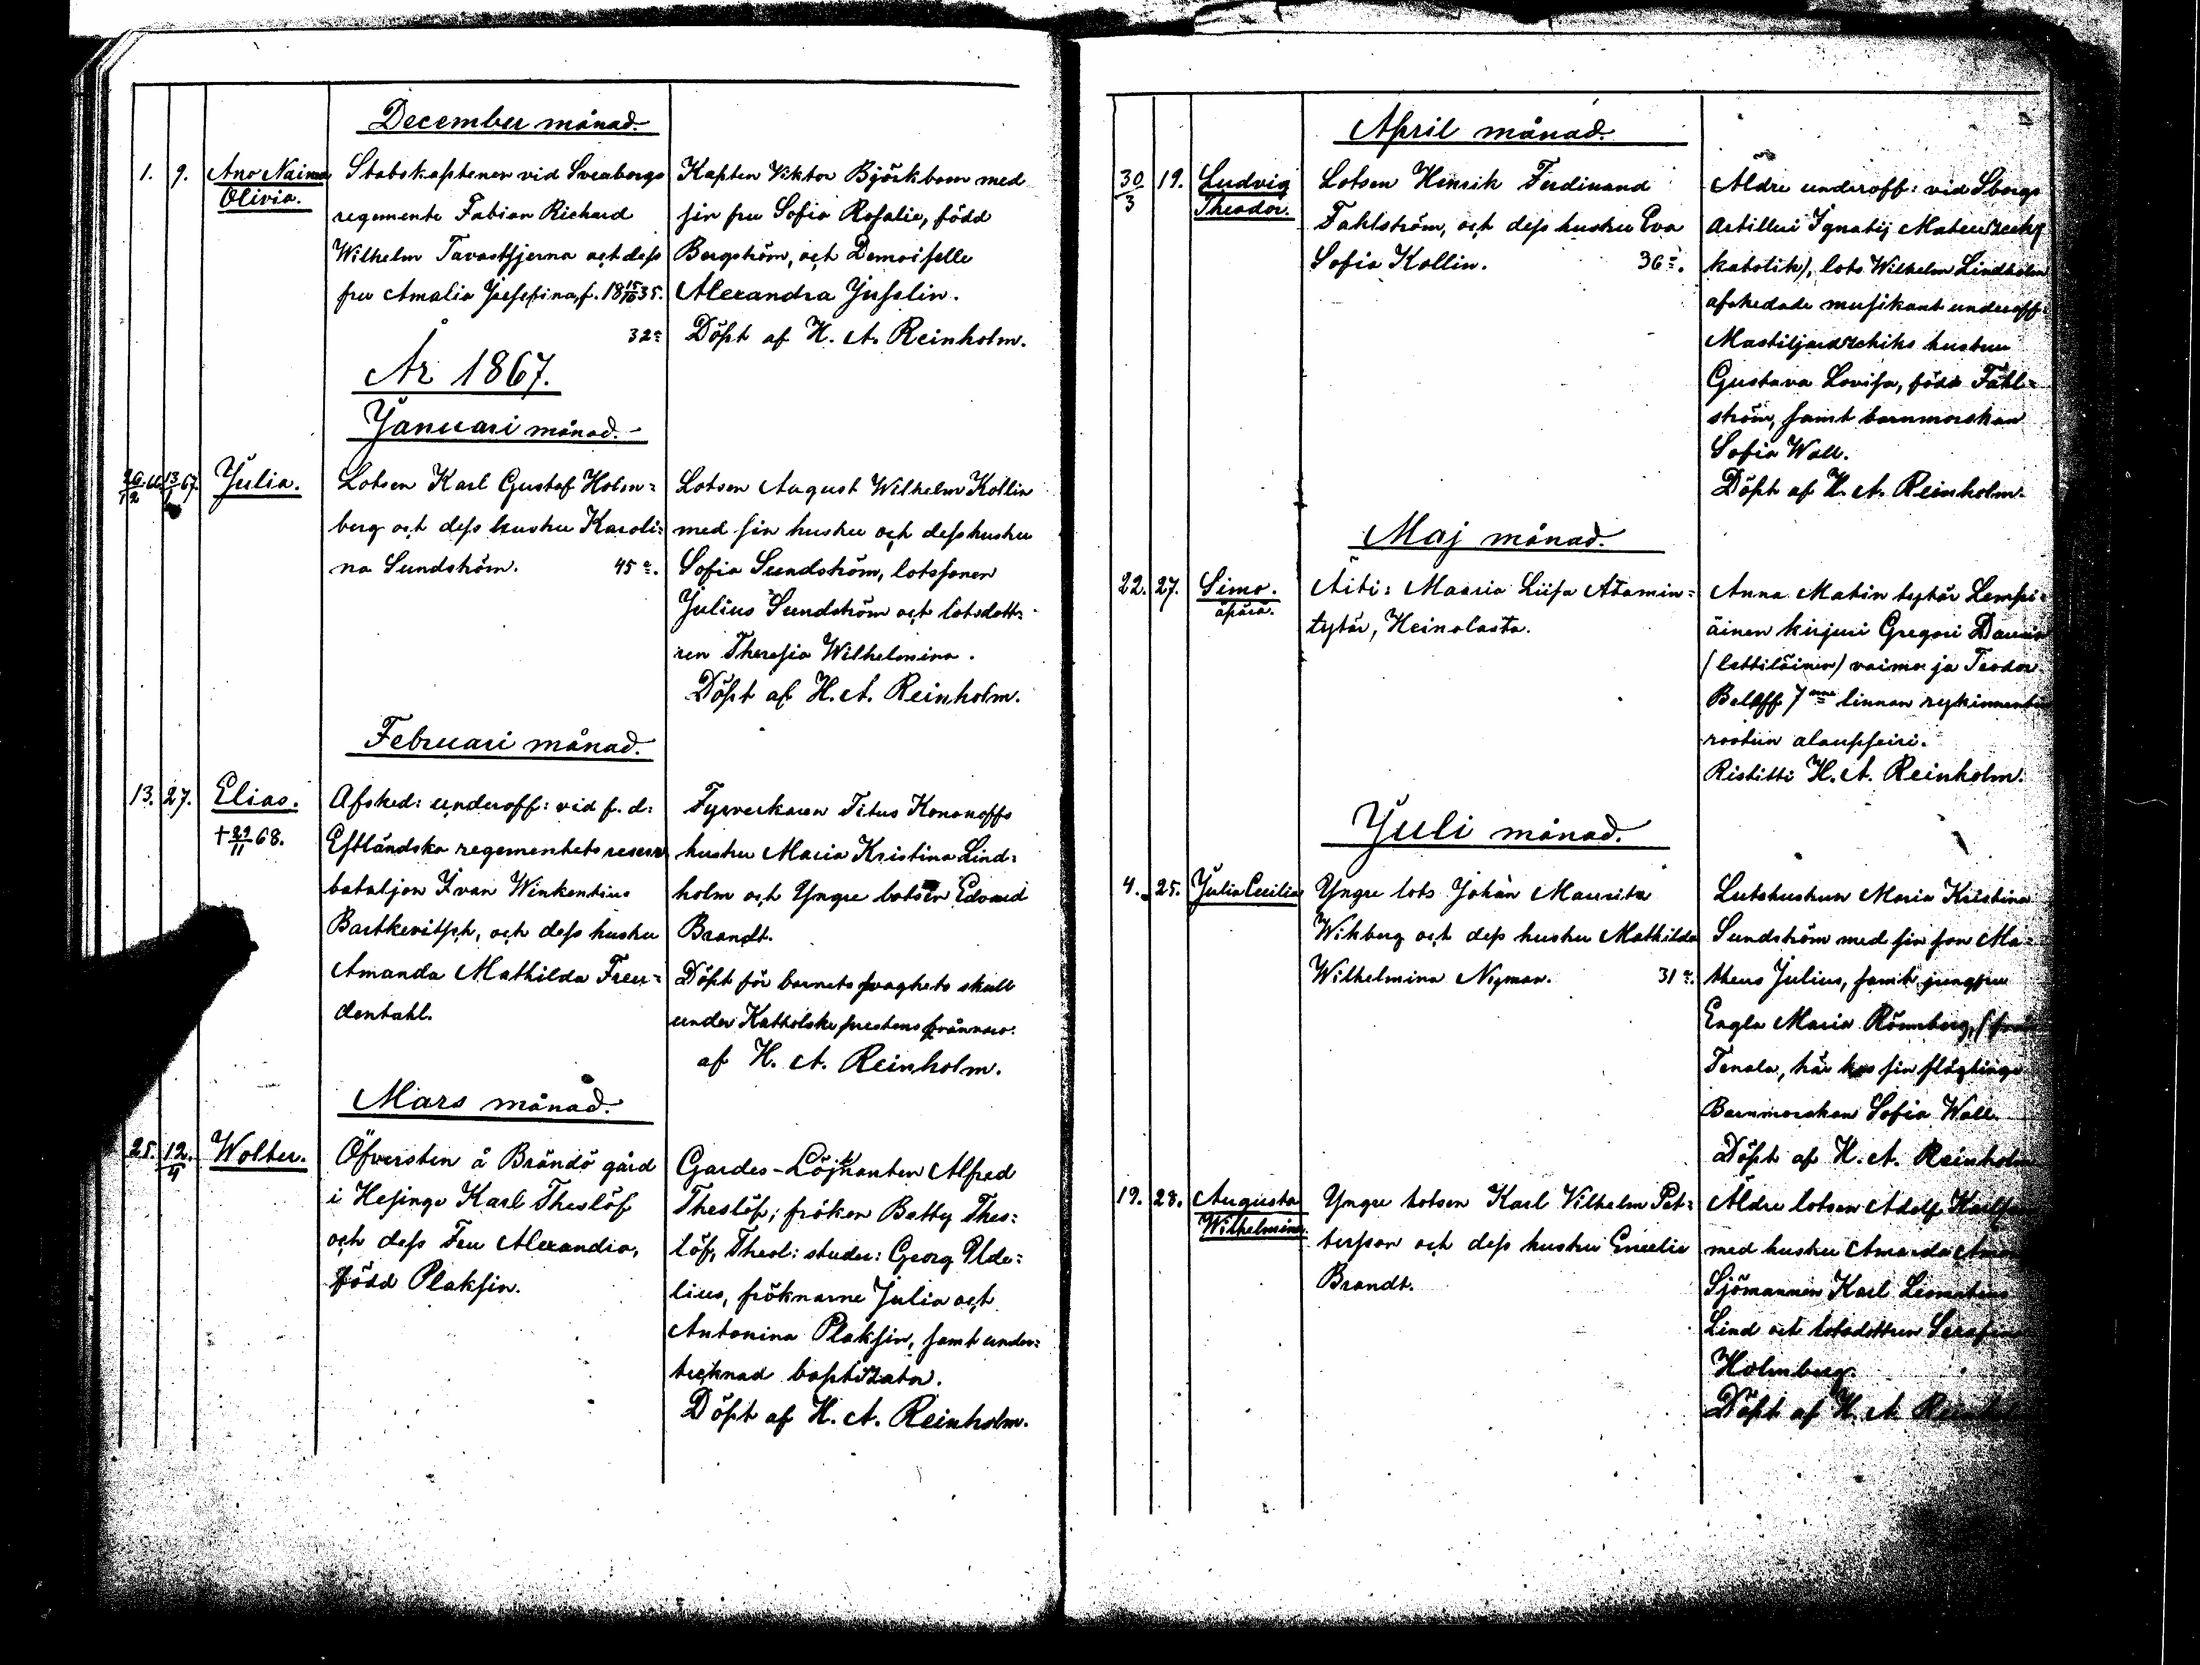 December månad.
1. 9. Ano Naima Stabskaptenen vid Sveaborgs Kapten Viktor Björkbom med
Olivia. regemente Fabian Richard sin fru Sofia Rosalie, född
Wilhelm Tavaststjerna och dess Bergström, och Demoiselle
fru Amalia Josefina, f. 18 15/10 35. Alexandra Juslin.
32 Döpt af H. A. Reinholm.
År 1867.
Januari månad.
26/12 66 13/1 67. Julia. Lotsen Karl Gustaf Holm= Lotsen August Wilhelm Kollin
berg och dess hustru Karoli= med sin hustru och dess hustru
na Sundström. 45 Sofia Sundström, lotssonen
Julius Sundström och lotsdott=
ren Theresia Wilhelmina.
Döpt af H. A. Reinholm.
Februari månad.
13. 27. Elias. Afsked: underoff: vid f. d: Fyrverkaren Titus Kononoffs
+ 29/11 68. Estländska regementets reserv hustru Maria Kristina Lind=
bataljon Ivan Winkentius holm och Yngre lotsen Edvard
Bartkevitsch, och dess hustru Brandt.
Amanda Mathilda Freu= Döpt för barnets svaghets skull
dentahl. under Katholske prestens frånvaro.
af H. A. Reinholm.
Mars månad.
25. 12/4 Wolter. Öfversten å Brändö gård Gardes-Löjtnanten Alfred
i Hesinge Karl Theslöf Theslöf; fröken Betty Thes=
och dess Fru Alexandra, löf, Theol: studer: Georg Ude=
född Plaksin. lius, fröknarne Julia och
Antonina Plaksin, samt under=
tecknad baptizator.
Döpt af H. A. Reinholm.
April månad.
30/3 19. Ludvig Lotsen Henrik Ferdinand Äldre underoff: vid Sborgs
Theodor. Fahlström, och dess hustru Eva Artilleri Ignatij
Sofia Kollin. 36 katolik), lots Wilhelm Lindholm
afskedade musikant underoff:
hustru
Gustava Lovisa, född Fahl=
ström, samt barnmorskan
Sofia Wall.
Döpt af H. A. Reinholm.
Maj månad.
22. 27. Simo. Äiti: Maaria Liisa Atamin= Anna Matin tytär Lempi=
äpärä. tytär, Heinolasta. äinen kirjuri Gregori
(lättiläinen) vaimo ja Teodor
Baloff 7 linnan rykimentin
rootun alaupseiri.
Ristitti H. A. Reinholm.
Juli månad.
4. 25. Julia Cecilia Yngre lots Johan Mauritz Lotshustrun Maria Kristina
Wikberg och dess hustru Mathilda Sundström med sin son Ma=
Wilhelmina Nyman. 31 theus Julius, samt jungfru
Engla Maria Rönnberg, (från
Tenala, här hos sin slägtinge
Barnmorskan Sofia Wall.
Döpt af H. A. Reinholm
19. 28. Augusta Yngre lotsen Karl Vilhelm Pet= Äldre lotsen Adolf Karlsson
Wilhelmina. tersson och dess hustru Emelie med hustru Amanda
Brandt. Sjömannen Karl
Lind och lotsdottren Serafina
Holmberg.
Döpt af H. A. Reinholm